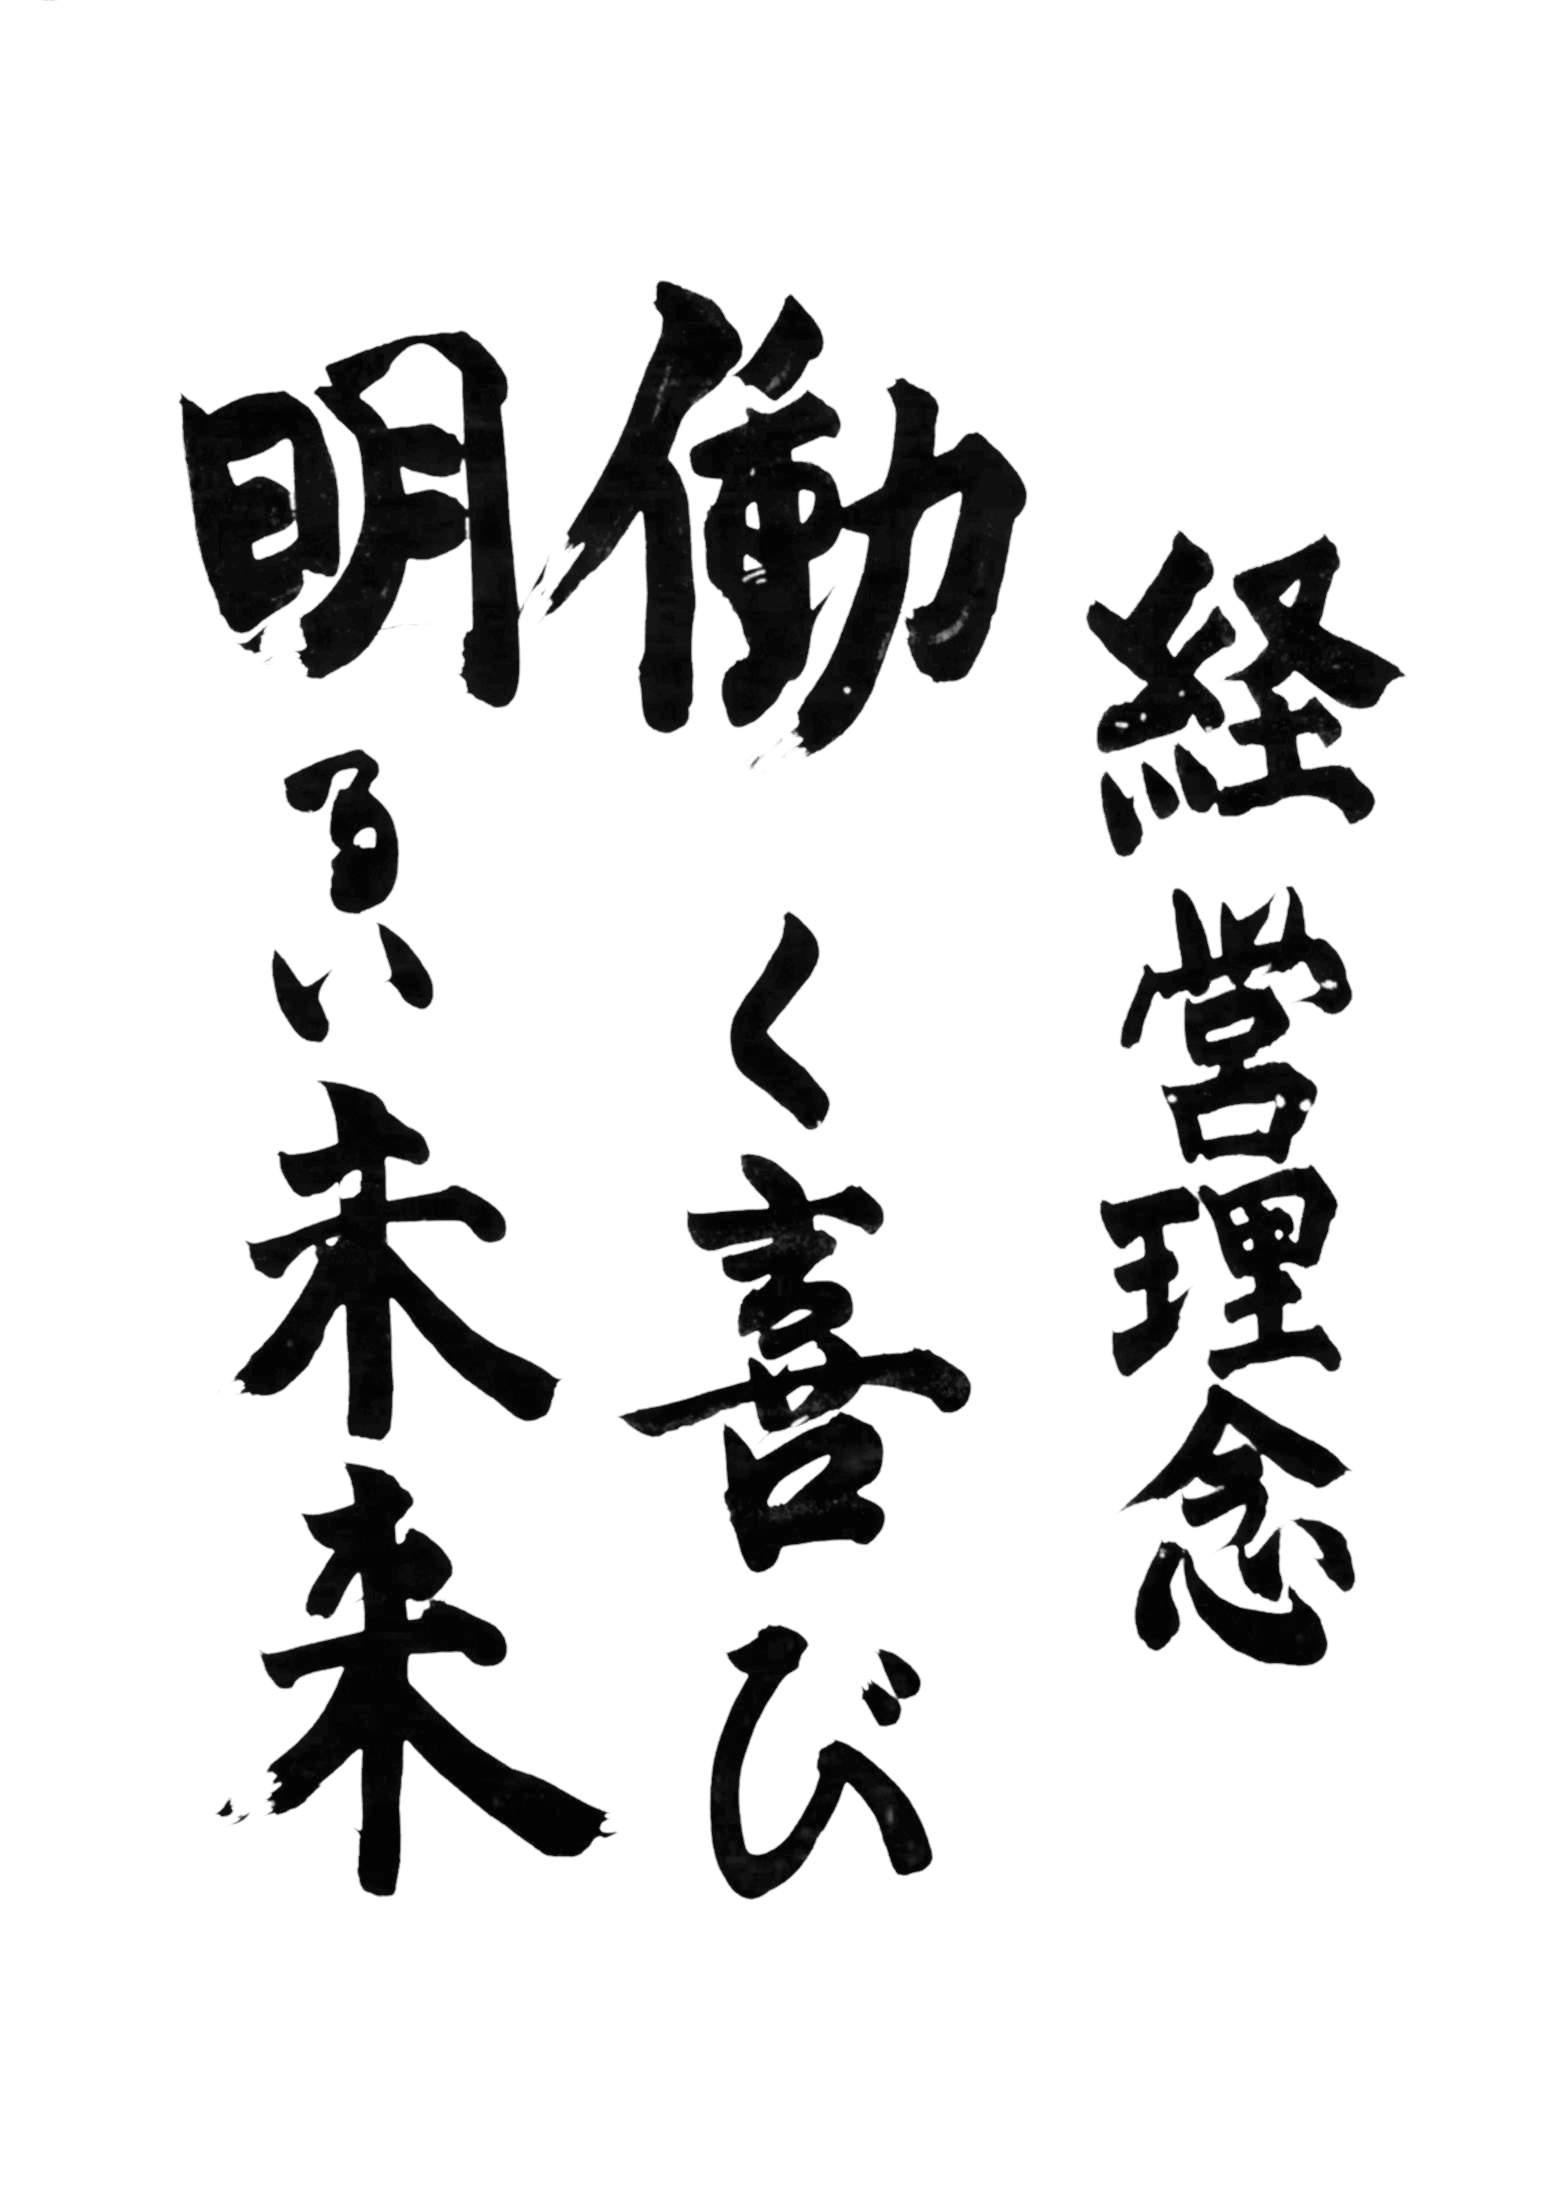 経営理念
働く喜び
明るい未来